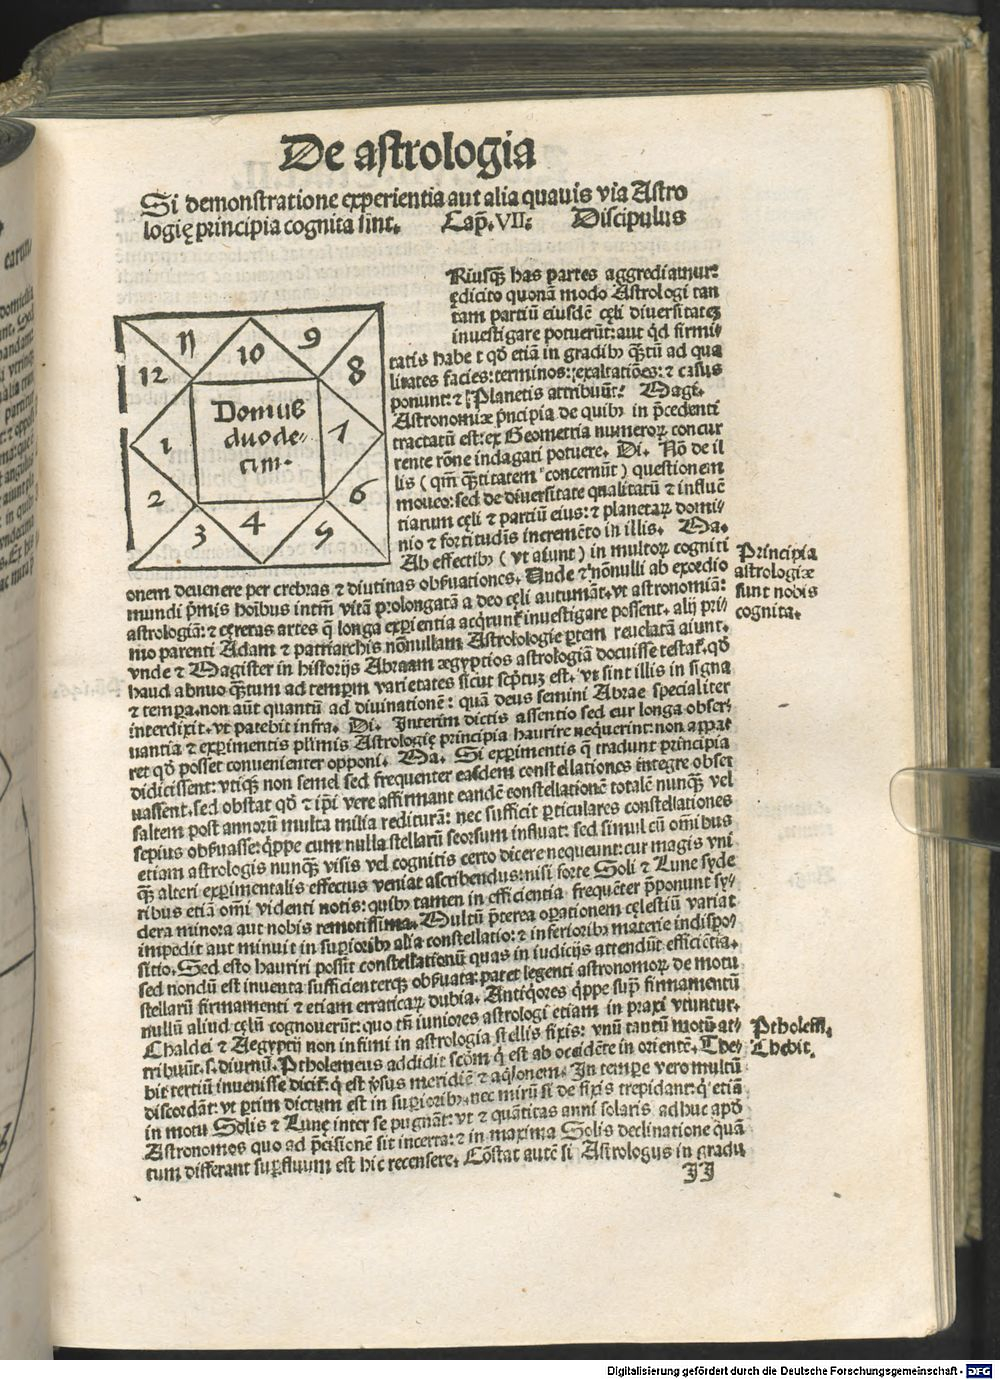 De astrologia
Si demonstratione experientia aut alia quauis via Astro
logię principia cognita sint. Cap̄. VII: Discipulus
Riusq̃ has partes aggrediamur:
ędicito quonā modo Astrologi tan
tam partiū eiusdē cęli diuersitatē
inuestigare potuerūt: aut qd firmi⸗
tatis habet qđ etiā in gradibꝰ q̃stū ad qua
litates facies: terminos: exaltatiōes: ⁊ casus
ponunt: ⁊ Planetis attribuūt: Magi.
Astronomiæ p̄ncipia de quibꝰ in p̄cedenti
tractatū est: ex Geometria numeroꝝ concur
rente rōne indagari potuere. Di. Nō de il
lis (qm̄ q̃titatem concernūt) questionem
moueo: sed de diuersitate qualitatū ⁊ influē
tiarum cęli ⁊ partiū eius: ⁊ planetaꝝ domi⸗
nio ⁊ fortitudis incremēto in illis. Ma.
Ab effectibꝰ (vt aiunt) in multoꝝ cogniti
11
10
9
12
8
Domus
duode⸗
cim.
1
7
2
6
3
4
5
onem deuenere per crebras ⁊ diutinas obſuationes. Unde ⁊ nōnulli ab exordio
mundi p̄mis hoibus intm̄ vitā prolongatā a deo cęli autumāt. vt astronomiā:
astrologiā: ⁊ cęteras artes q̄ longa exꝑientia acqrunt᷑ inuestigare possent. alij pri⸗
mo parenti Adam ⁊ patriarchis nōnullam Astrolologie ꝑtem reuelatā aiunt.
vnde ⁊ Magister in historijs Abraam ægyptios astrologiā docuisse testat᷑. qđ
haud abnuo q̃stum ad temꝑm varietates sicut scp̄tuz est. vt sint illis in signa
⁊ tempa. non aūt quantū ad diuinationē: quā deus semini Abrae specialiter
interdixit. vt patebit infra. Di. Interim dictis assentio sed cur longa obser⸗
uantia ⁊ exꝑimentis pl̄imis Astrologię principia haurire nequerint: non appar
ret qđ posset conuenienter opponi. Ma. Si exꝑimentis q̄ tradunt principia
didicissent: vtiq̃ non semel sed frequenter easdem constellationes integre obser
uassent. sed obstat qđ ⁊ ip̄i vere affirmant eandē constellationē totalē nunq̃ vel
saltem post annorū multa milia rediturā: nec sufficit ꝑticulares constellationes
sepius obſuasse: q̄ppe cum nulla stellarū seorsum influat: sed simul cū om̄ibus
etiam astrologis nunq̃ visis vel cognitis certo dicere nequeunt: cur magis vni
q̃ alteri exꝑimentalis effectus veniat ascribendus: nisi forte Soli ⁊ Lune syde
ribus etiā om̄i videnti notis: quibꝰ tamen in efficientia frequēter p̄ponunt sy⸗
dera minora aut nobis remotissima. Multū p̄terea oꝑationem cęlestiū variat
impedit aut minuit in suꝑioribꝰ alia constellatio: ⁊ in inferioribꝰ materie indispo⸗
sitio. Sed esto hauriri possit constellationū quas in iudicijs attendūt efficiētia.
sed nondū est inuenta sufficienterq̃ obſuata: patet legenti astronomoꝝ de motu
stellarū firmamenti ⁊ etiam erraticaꝝ dubia. Antiq̄ores q̄ppe sup̄ firmamentū
nullū aliud cęlū cognouerūt: quo tn̄ iuniores astrologi etiam in praxi vtuntur.
Chaldei ⁊ Aegyptij non infimi in astrologia stellis fixis: vnū tantū motū at⸗
tribuūt. s. diurnū. Ptholemeus addidit scdm̄ q̄ est ab occidēte in orientē. The⸗
bit tertiū inuenisse dicit᷑: q̄ est ꝟsus meridiē ⁊ aq̄lonem. In tempe vero multū
discordāt: vt ꝑtim dictum est in suꝑioribꝰ, nec mirū si de fixis trepidant: q̄ etiā
in motu Solis ⁊ Lunę inter se pugnāt: vt ⁊ quātitas anni solaris adhuc apđ
Astronomos quo ad p̄cisionē sit incerta: ⁊ in maxima Solis declinatione quā
tum differant suꝑfluum est hic recensere. Cōstat autē si Astrologus in gradu
II
Principia
astrologiæ
sunt nobis
cognita.
Ptholem̄.
Thebit.
Digitalisierung gefördert durch die Deutsche Forschungsgemeinschaft - DFG